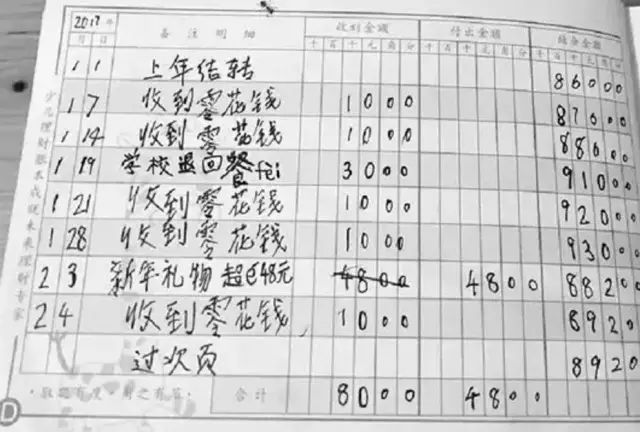 2017年 备注明细 收到金额 付出金额 结余金额
月 日 千 百 十 元 角 分 千 百 十 元 角 分 千 百 十 元 角 分
1 1 上年结转 86000
1 7 收到零花钱 1000 87000
1 14 收到零花钱 1000 88000
1 19 学校退回餐fei 3000 91000
1 21 收到零花钱 1000 92000
1 28 收到零花钱 1000 93000
2 3 新年礼物 48元 4800 4800 88200
2 4 收到零花钱 1000 8920
过次页 8920
·取之有度·用之有节· 合计 8000 4800
少儿理财账本成就未来理财专家
D